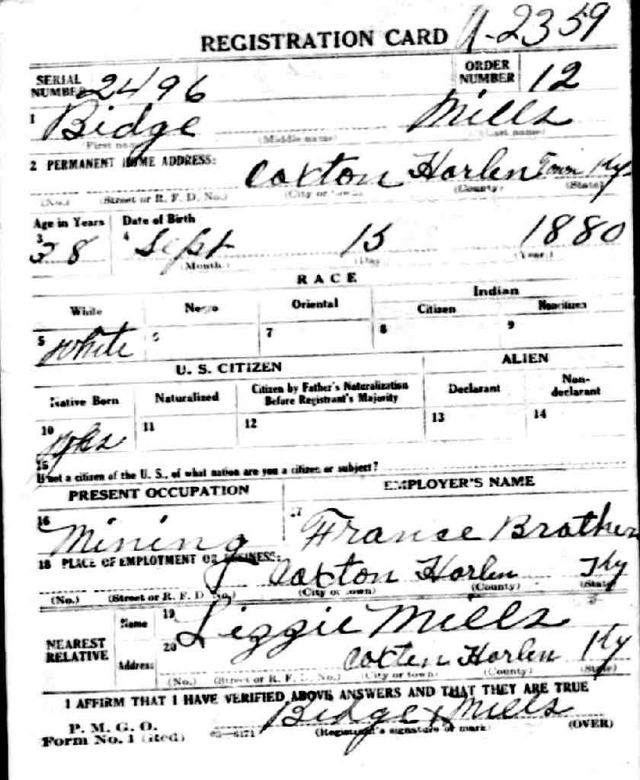 REGISTRATION CARD A-2359
SERIAL NUMBER 2496 ORDER NUMBER 12
1 Bidge Mills
(First name) (Middle name) (Last name)
2 PERMANENT HOME ADDRESS: Coxton Harlen Town Ky
(No.) (Street or R. F. D. No.) (City or town) (County) (State)
Age in Years Date of Birth
3 38 4 Sept 15 1880
(Month) (Day) (Year)
RACE
White Negro Oriental Indian
Citizen Noncitizen
5 White 6 7 8 9
U. S. CITIZEN ALIEN
Native Born Naturalized Citizen by Father's Naturalization Before Registrant's Majority Declarant Non-declarant
10 Yes 11 12 13 14
15 If not a citizen of the U. S., of what nation are you a citizen or subject?
PRESENT OCCUPATION EMPLOYER'S NAME
16 Mining 17 France Brother
18 PLACE OF EMPLOYMENT OR BUSINESS:
Coxton Harlen Ky
(No.) (Street or R. F. D. No.) (City or town) (County) (State)
NEAREST RELATIVE Name 19 Lizzie Mills
Address 20 Coxten Harlen Ky
(No.) (Street or R. F. D. No.) (City or town) (County) (State)
I AFFIRM THAT I HAVE VERIFIED ABOVE ANSWERS AND THAT THEY ARE TRUE
P. M. G. O.
Form No. 1 (Red) 03-6171 Bidge x Mills
(Registrant's signature or mark) (OVER)